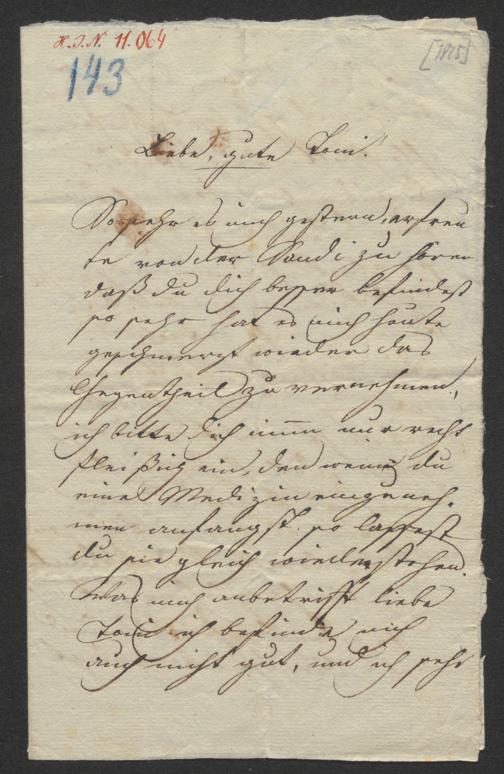 H.I.N. 11.064
143
[1815]
Liebe, gute Toni!
So sehr es mich gestern, erfreu
te von der Sandi zu hören
daß du dich besser befindest
so sehr hat es mich heute
geschmerzt wieder das
Gegentheil zu vernehmen,
ich bitte dich nimm nur recht
fleißig ein, den wenn du
eine Medizin einzuneh-
men anfangst so lassest
du sie gleich wieder stehen.
Was mich anbetrifft liebe
Toni ich befinde mich
auch nicht gut, und ich sehr